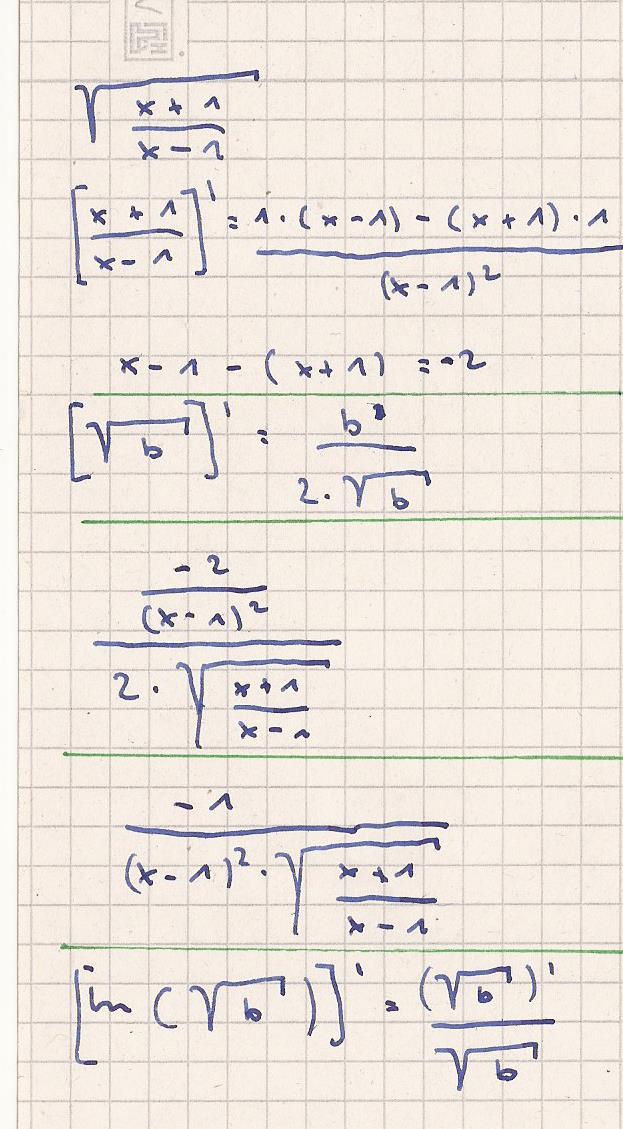 √((x+1)/(x-1))
[(x+1)/(x-1)]' = (1·(x-1) - (x+1)·1)/(x-1)²
x-1-(x+1) = -2
[√b]' = b'/(2·√b)
(-2/(x-1)²)/(2·√((x+1)/(x-1)))
-1/((x-1)²·√((x+1)/(x-1)))
[ln(√b)]' = (√b)'/√b